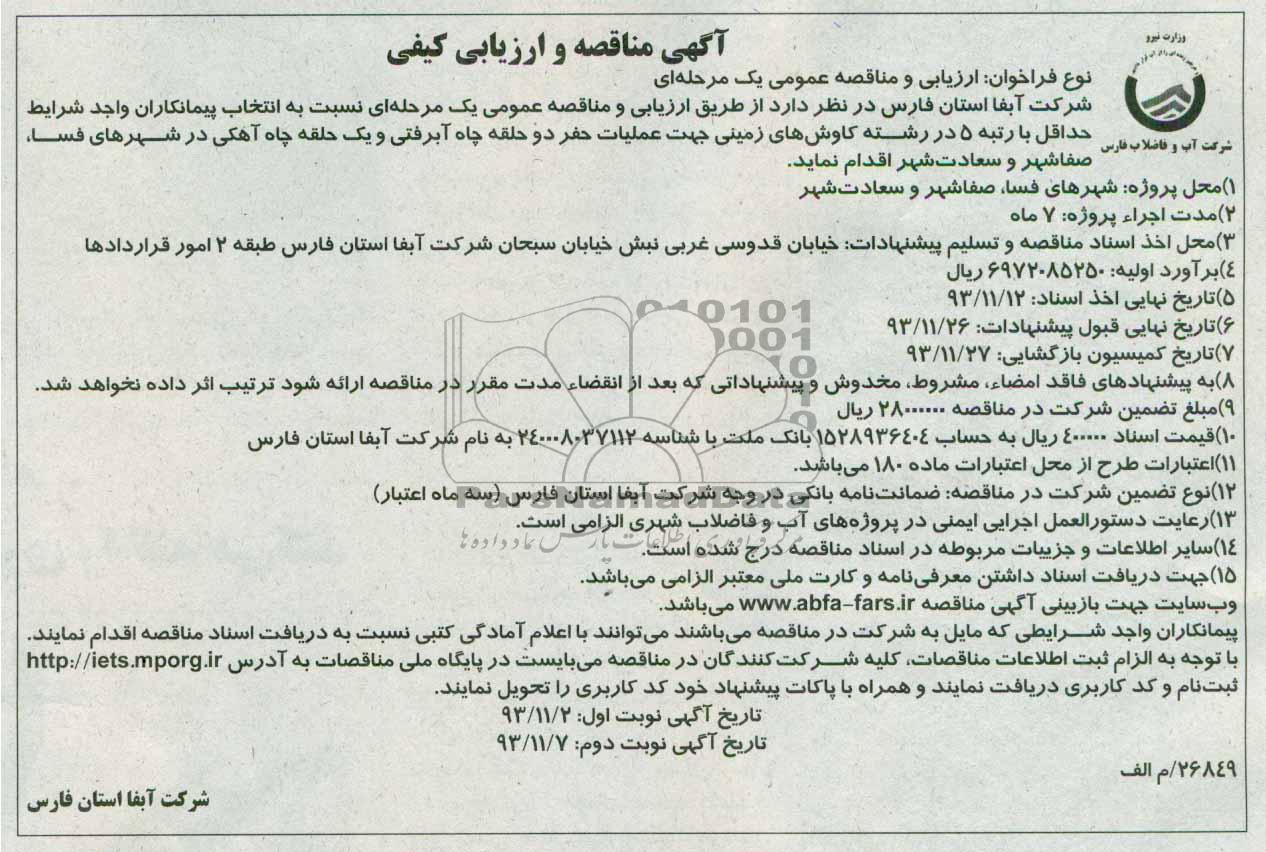 وزارت نیرو
شرکت آب و فاضلاب فارس
آگهی مناقصه و ارزیابی کیفی
نوع فراخوان: ارزیابی و مناقصه عمومی یک مرحله‌ای
شرکت آبفا استان فارس در نظر دارد از طریق ارزیابی و مناقصه عمومی یک مرحله‌ای نسبت به انتخاب پیمانکاران واجد شرایط
حداقل با رتبه ۵ در رشته کاوش‌های زمینی جهت عملیات حفر دو حلقه چاه آبرفتی و یک حلقه چاه آهکی در شهرهای فسا،
صفاشهر و سعادت‌شهر اقدام نماید.
۱)محل پروژه: شهرهای فسا، صفاشهر و سعادت‌شهر
۲)مدت اجراء پروژه: ۷ ماه
۳)محل اخذ اسناد مناقصه و تسلیم پیشنهادات: خیابان قدوسی غربی نبش خیابان سبحان شرکت آبفا استان فارس طبقه ۲ امور قراردادها
۴)برآورد اولیه: ۶۹۷۲۰۸۵۲۵۰ ریال
۵)تاریخ نهایی اخذ اسناد: ۹۳/۱۱/۱۲
۶)تاریخ نهایی قبول پیشنهادات: ۹۳/۱۱/۲۶
۷)تاریخ کمیسیون بازگشایی: ۹۳/۱۱/۲۷
۸)به پیشنهادهای فاقد امضاء، مشروط، مخدوش و پیشنهاداتی که بعد از انقضاء مدت مقرر در مناقصه ارائه شود ترتیب اثر داده نخواهد شد.
۹)مبلغ تضمین شرکت در مناقصه ۲۸۰۰۰۰۰۰ ریال
۱۰)قیمت اسناد ۴۰۰۰۰۰ ریال به حساب ۱۵۲۸۹۳۶۴۰۴ بانک ملت با شناسه ۲۴۰۰۰۸۰۳۷۱۱۲ به نام شرکت آبفا استان فارس
۱۱)اعتبارات طرح از محل اعتبارات ماده ۱۸۰ می‌باشد.
۱۲)نوع تضمین شرکت در مناقصه: ضمانت‌نامه بانکی در وجه شرکت آبفا استان فارس (سه ماه اعتبار)
۱۳)رعایت دستورالعمل اجرایی ایمنی در پروژه‌های آب و فاضلاب شهری الزامی است.
۱۴)سایر اطلاعات و جزییات مربوطه در اسناد مناقصه درج شده است.
۱۵)جهت دریافت اسناد داشتن معرفی‌نامه و کارت ملی معتبر الزامی می‌باشد.
وب‌سایت جهت بازبینی آگهی مناقصه www.abfa-fars.ir می‌باشد.
پیمانکاران واجد شرایطی که مایل به شرکت در مناقصه می‌باشند می‌توانند با اعلام آمادگی کتبی نسبت به دریافت اسناد مناقصه اقدام نمایند.
با توجه به الزام ثبت اطلاعات مناقصات، کلیه شرکت‌کنندگان در مناقصه می‌بایست در پایگاه ملی مناقصات به آدرس http://iets.mporg.ir
ثبت‌نام و کد کاربری دریافت نمایند و همراه با پاکات پیشنهاد خود کد کاربری را تحویل نمایند.
تاریخ آگهی نوبت اول: ۹۳/۱۱/۲
تاریخ آگهی نوبت دوم: ۹۳/۱۱/۷
۲۶۸۴۹/م الف
شرکت آبفا استان فارس
ParsNamadData
مرکز فرآوری اطلاعات پارس نماد داده ها